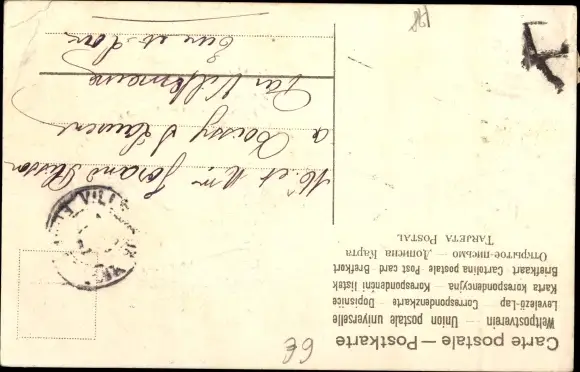 Carte postale — Postkarte
Weltpostverein — Union postale universelle
Levelező-Lap — Correspondenzkarte — Dopisnice
Karta korespondencyjna — Korespondenční lístek
Briefkaart — Cartolina postale — Post card — Brefkort
Открытое письмо — Дописна Карта
TARJETA POSTAL
et Mme
a Boissy
par Villemeux
Eure et Loir
6€